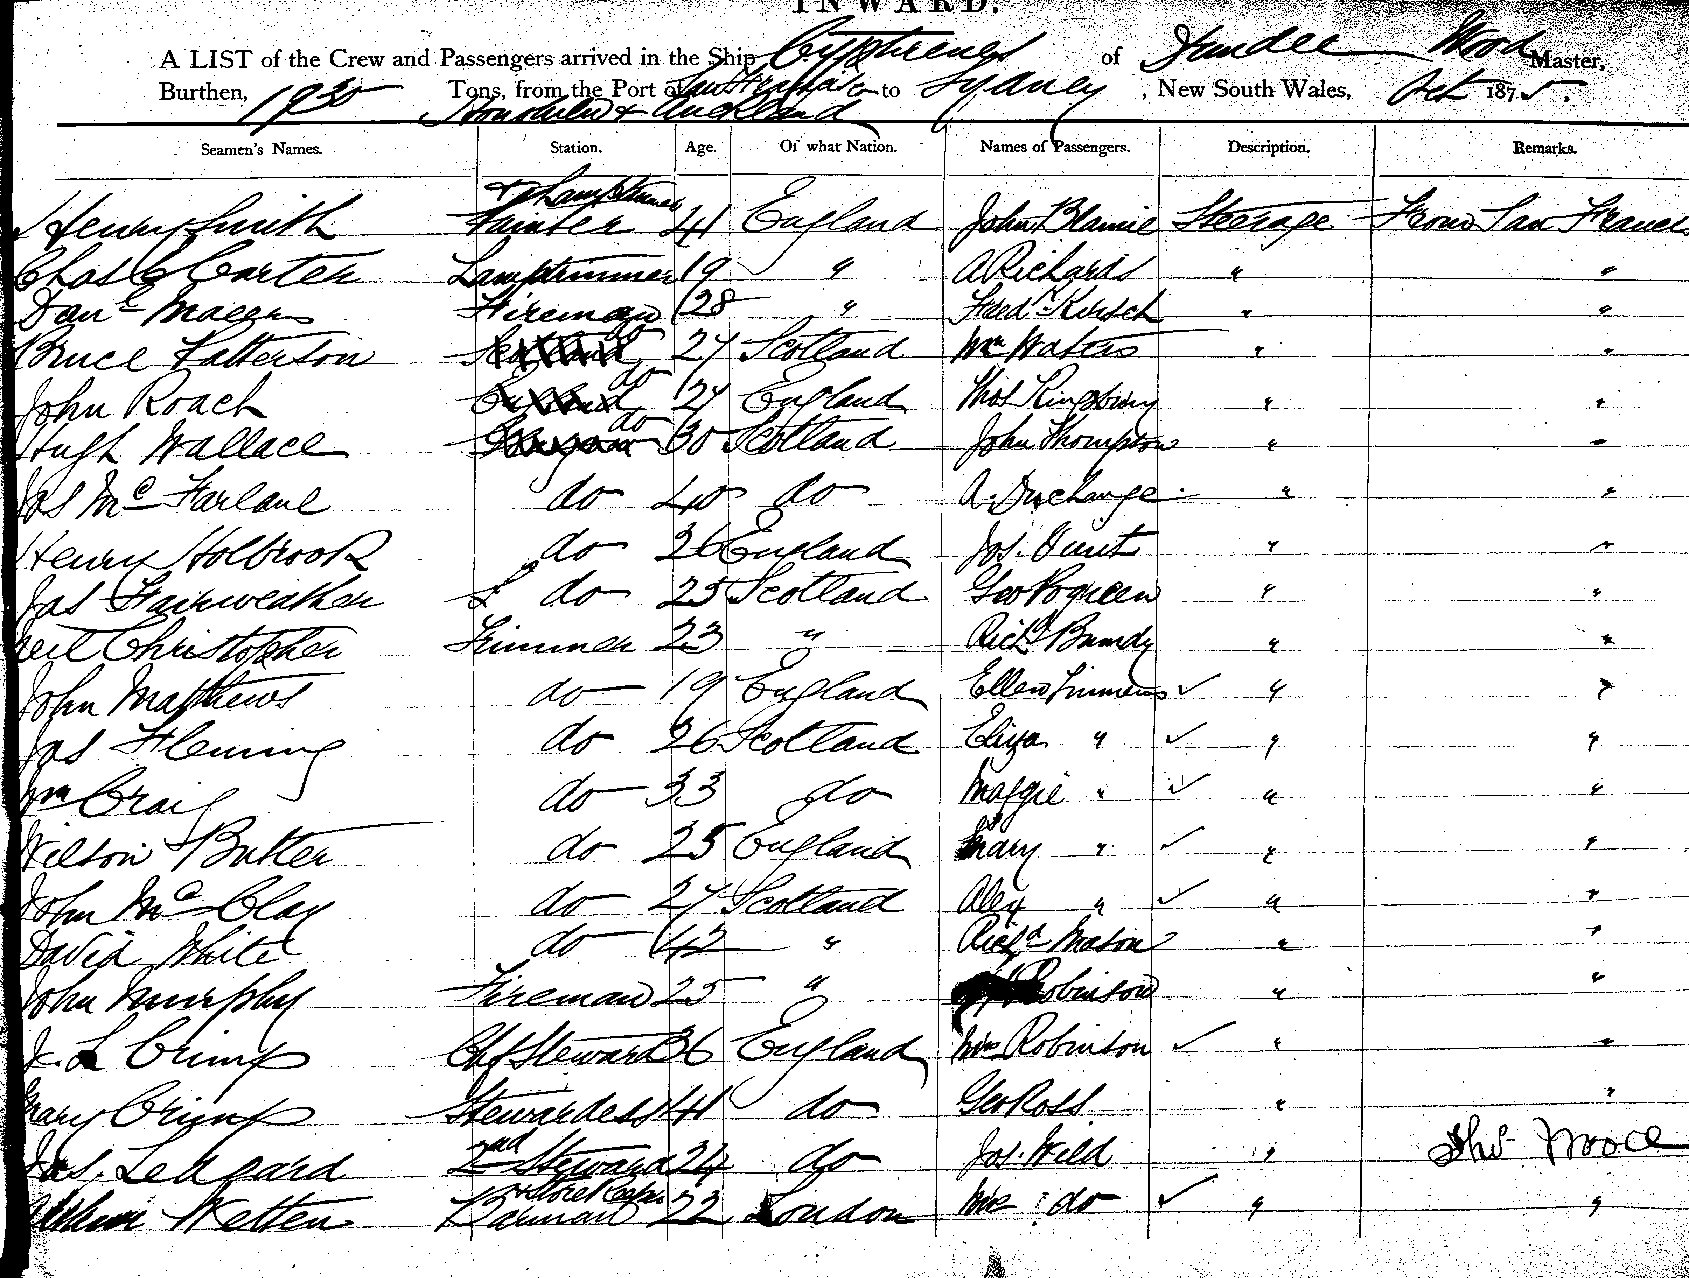 INWARD.
A LIST of the Crew and Passengers arrived in the Ship Cyphrenes of Dundee Wood Master,
Burthen, 1930 Tons, from the Port of San Francisco to Sydney, New South Wales, Oct 1875.
Honolulu & Auckland
Seamen's Names. Station. Age. Of what Nation. Names of Passengers. Description. Remarks.
& Lamptrimmer
Henry Smith Painter 41 England John Blamie Steerage From San Franc
Chas C Carter Lamptrimmer 19 " A Richards " "
Danl Magee Fireman 28 " Fredk Kirsch " "
Bruce Patterson do 27 Scotland Wm Waters " "
John Roach do 27 England Thos Kingsbury " "
Hugh Wallace do 30 Scotland John Thompson " "
Jas McFarlane do 40 do A. Duchange " "
Henry Holbrook do 26 England Jos. " "
Jas Fairweather do 25 Scotland Geo " "
Neil Christopher Trimmer 23 " Richd Bundy " "
John Matthews do 19 England Ellen Simmens " "
Jas Fleming do 26 Scotland Eliza " " "
Wm Craig do 33 do Maggie " " "
Wilson Butler do 25 England Mary " " "
John McClay do 27 Scotland Alex " " "
David White do 42 " Richd Mason " "
John Murphy Fireman 25 " Robinson " "
J. L Crimp Chf Steward 36 England Mrs Robinson " "
Mary Crimp Stewardess 41 do Geo Ross " "
Jas. Ledgard 2nd Steward 24 do Jos. Wild " Thos Wood
& Storekeeper
Wetten Barman 22 London Mrs : do " "